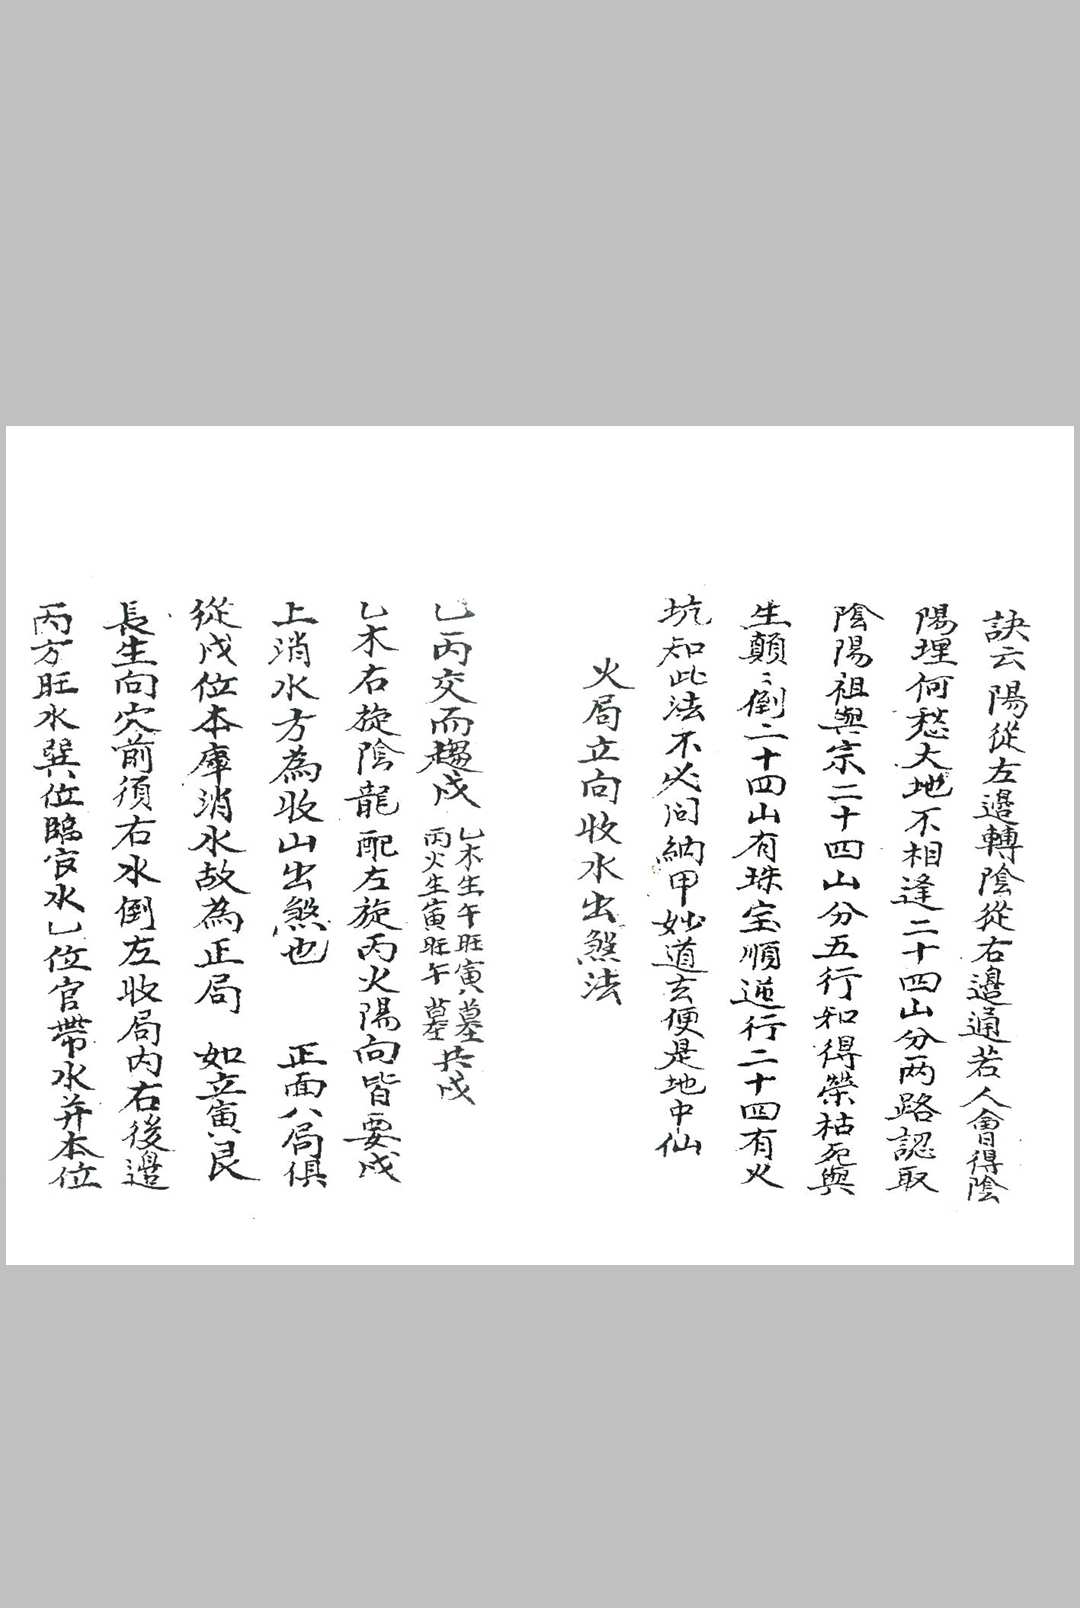 訣云陽從左邊轉陰從右邊通若人會得陰
陽理何愁大地不相逢二十四山分两路認取
陰陽祖與宗二十四山分五行知得榮枯死與
生顛〻倒二十四山有珠宝順逆行二十四有火
坑知此法不必问納甲妙道玄便是地中仙
火局立向收水出煞法
乙丙交而趨戌
乙木生午旺寅墓
丙火生寅旺午墓
共戌
乙木右旋陰龍配左旋丙火陽向皆要戌
上消水方為收山出煞也 正面八局俱
從戌位本庫消水故為正局 如立寅艮
長生向穴前須右水倒左收局内右後邉
丙方旺水巽位臨官水乙位官帶水并本位